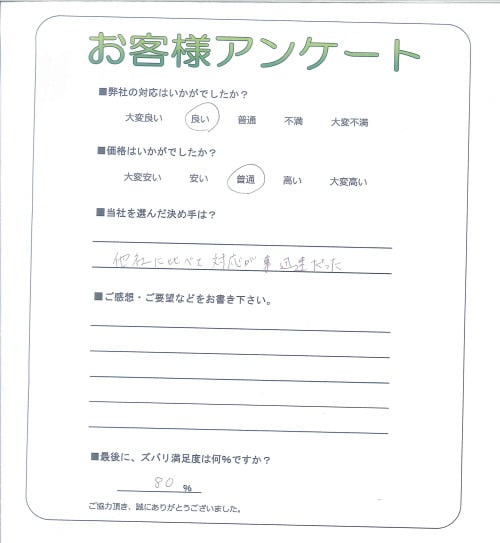 お客様アンケート
■弊社の対応はいかがでしたか?
大変良い 良い 普通 不満 大変不満
■価格はいかがでしたか?
大変安い 安い 普通 高い 大変高い
■当社を選んだ決め手は?
他社に比べて対応が迅速だった
■ご感想・ご要望などをお書き下さい。
■最後に、ズバリ満足度は何%ですか?
80 %
ご協力頂き、誠にありがとうございました。